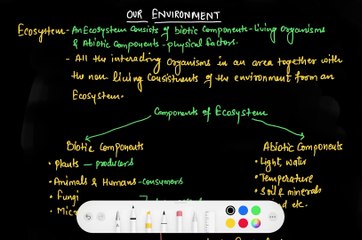 OUR ENVIRONMENT
Ecosystem - An Ecosystem consists of biotic components - living organisms
& Abiotic Components - physical factors.
- All the interacting organisms in an area together with
the non living constituents of the environment from an
Ecosystem.
Components of Ecosystem
Biotic Components
Abiotic Components
• Plants - producers
• Light, water
• Animals & Humans - consumers
• Temperature
• Fungi
• Soil & minerals
• Mic
etc.